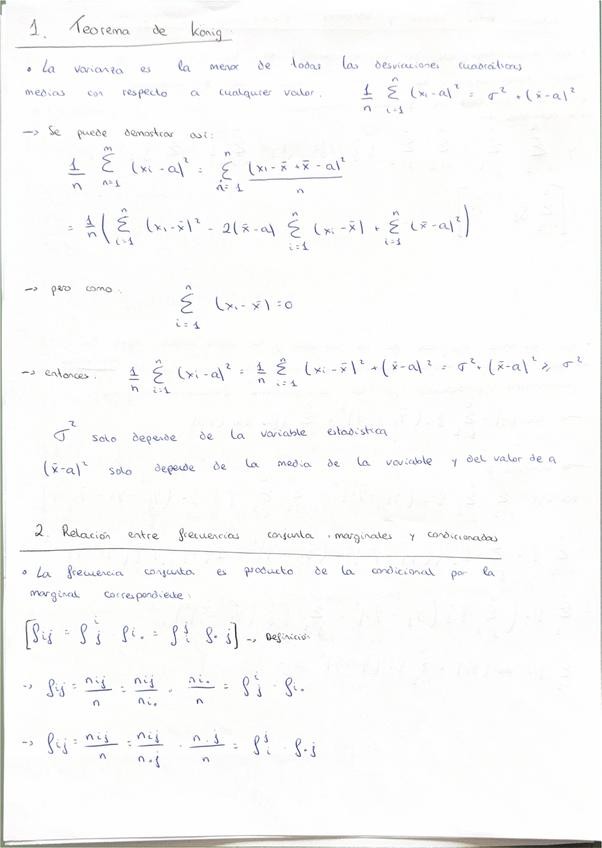 1. Teorema de König.
• La varianza es la menor de todas las desviaciones cuadráticas
medias con respecto a cualquier valor. 1/n Σ_{i=1}^{n} (xi-a)² = σ² + (x̄-a)²
→ Se puede demostrar así:
1/n Σ_{n=1}^{n} (xi-a)² = Σ_{i=1}^{n} (xi-x̄+x̄-a)²/n
= 1/n (Σ_{i=1}^{n} (xi-x̄)² - 2(x̄-a) Σ_{i=1}^{n} (xi-x̄) + Σ_{i=1}^{n} (x̄-a)²)
→ pero como: Σ_{i=1}^{n} (xi-x̄)=0
→ entonces: 1/n Σ_{i=1}^{n} (xi-a)² = 1/n Σ_{i=1}^{n} (xi-x̄)² + (x̄-a)² = σ² + (x̄-a)² ≥ σ²
σ² solo depende de la variable estadística
(x̄-a)² solo depende de la media de la variable y del valor de a
2. Relación entre frecuencias conjunta, marginales y condicionadas
• La frecuencia conjunta es producto de la condicional por la
marginal correspondiente:
[fij = f_j^i fi. = f_i^j f.j] → Definición
→ fij = nij/n = nij/ni. · ni./n = f_j^i · fi.
→ fij = nij/n = nij/n.j · n.j/n = f_i^j · f.j